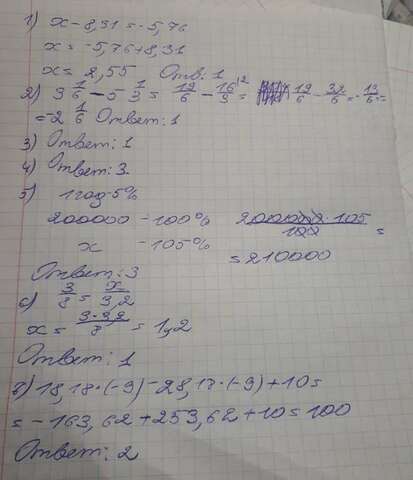 1) x-8,31=-5,76
x=-5,76+8,31
x=2,55 Отв: 1
2) 3 1/6 - 5 1/3 = 19/6 - 16/3 = 19/6 - 32/6 = -13/6 =
= -2 1/6 Ответ: 1
3) Ответ: 1
4) Ответ: 3.
5) 1 год-5%
200000 - 100% 200000·105/100 =
x - 105% = 210000
Ответ: 3
6) 3/8 = x/3,2
x = 3·3,2/8 = 1,2
Ответ: 1
7) 18,18·(-9)-28,18·(-9)+10=
= -163,62+253,62+10=100
Ответ: 2